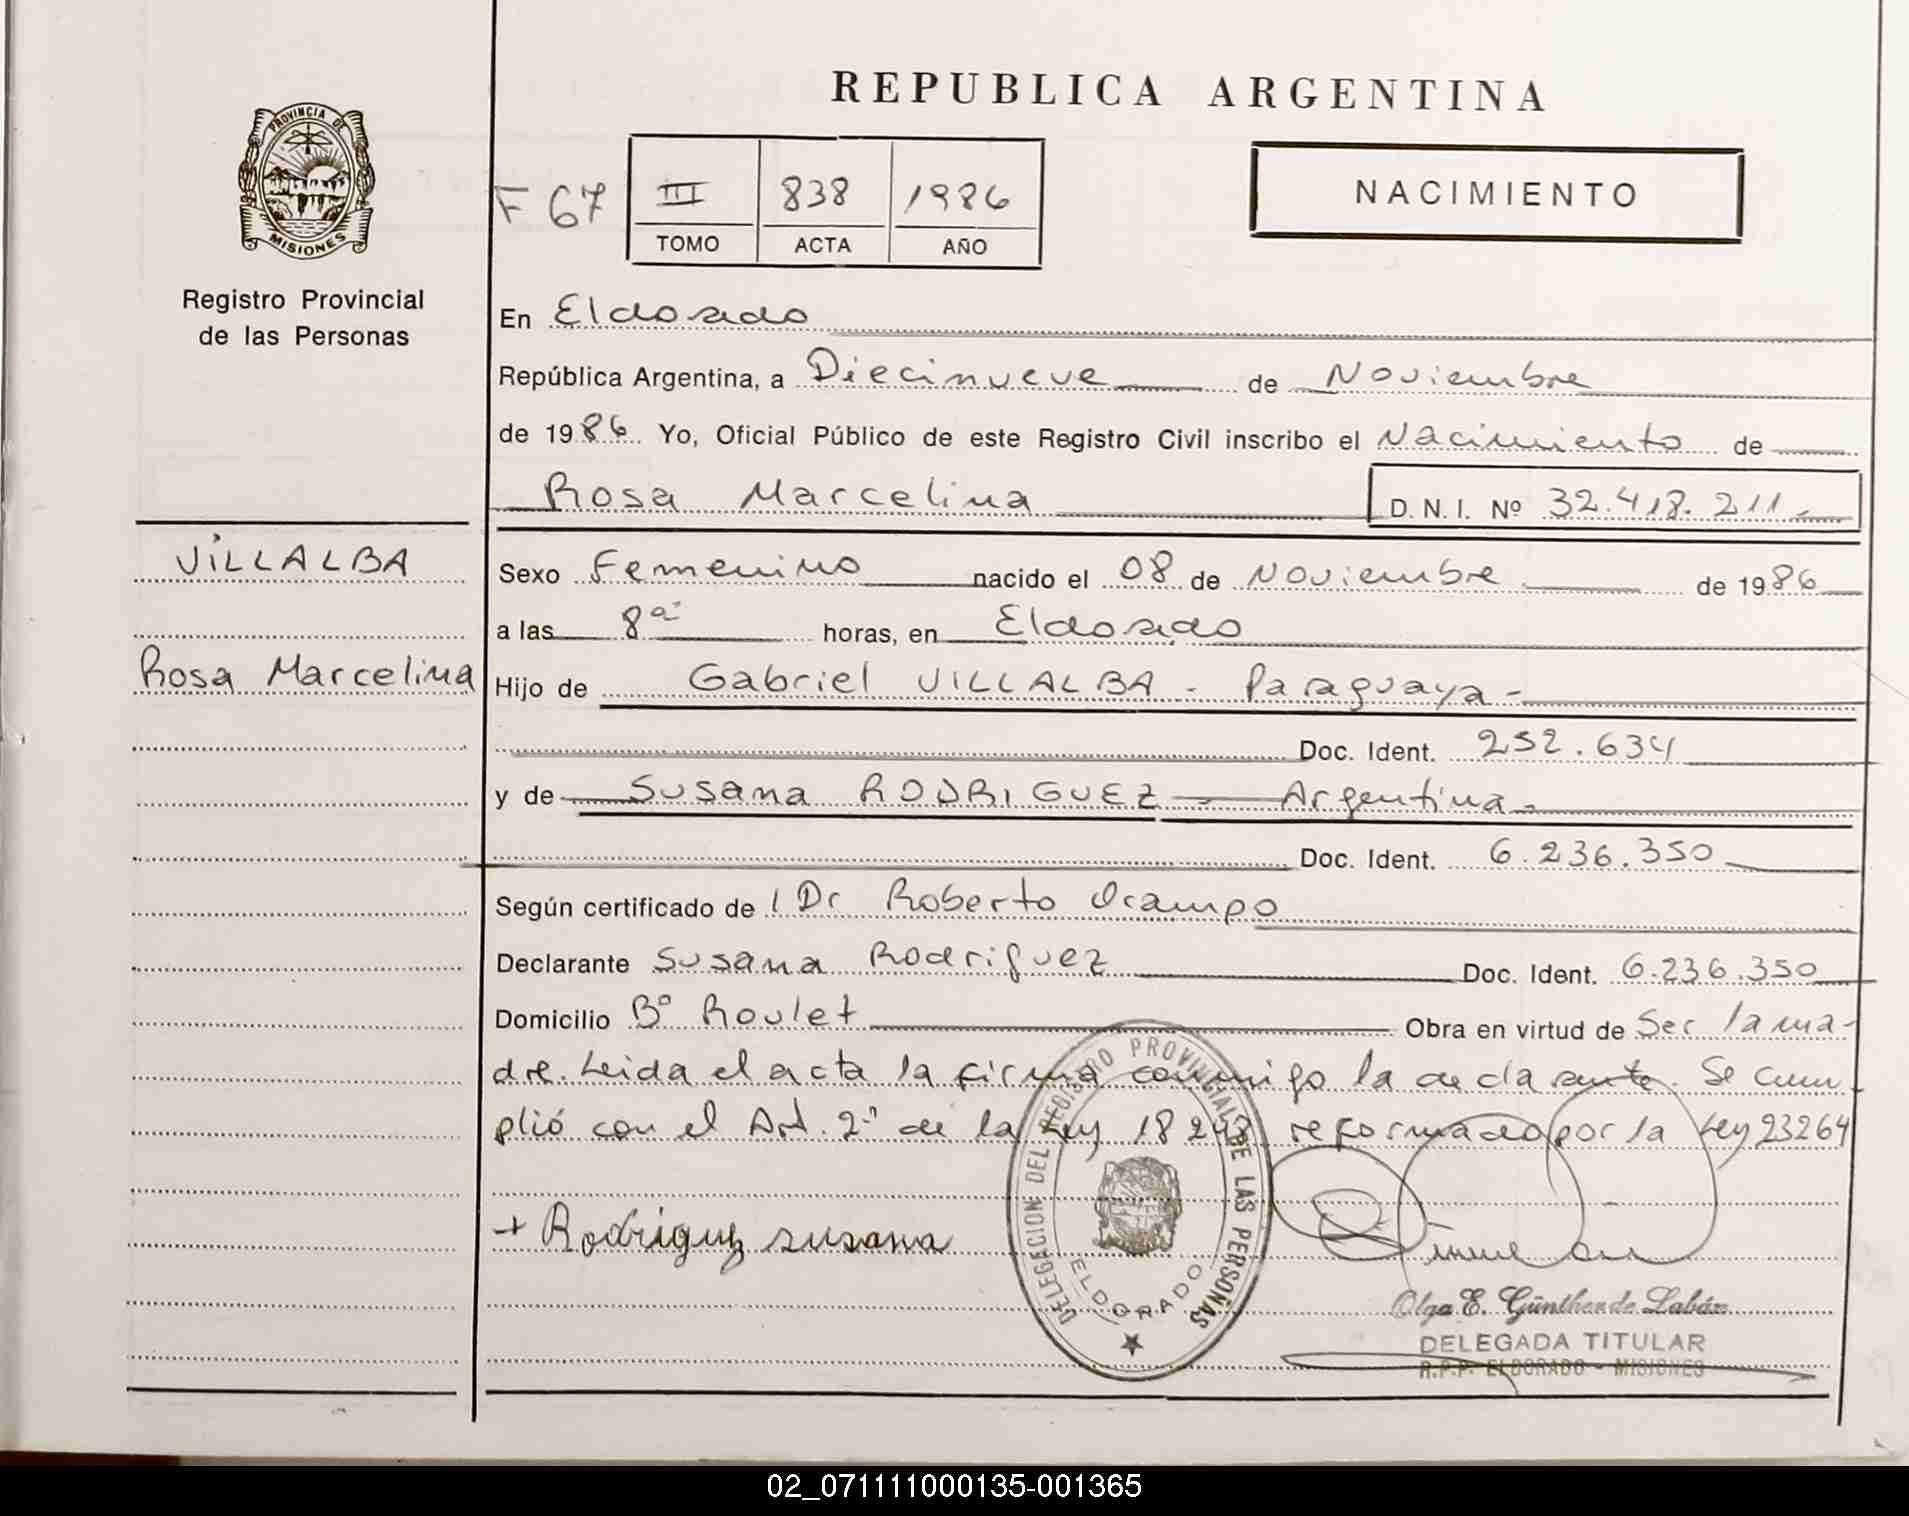 REPUBLICA ARGENTINA
PROVINCIA DE
MISIONES
Registro Provincial
de las Personas
F 67
III 838 1986
TOMO ACTA AÑO
NACIMIENTO
En Eldorado
República Argentina, a Diecinueve de Noviembre
de 1986 Yo, Oficial Público de este Registro Civil inscribo el Nacimiento de
Rosa Marcelina D. N. I. Nº 32.418.211.-
VILLALBA
Rosa Marcelina
Sexo Femenino nacido el 08 de Noviembre de 1986
a las 8ª horas, en Eldorado
Hijo de Gabriel VILLALBA - Paraguaya -
Doc. Ident. 252.634
y de Susana RODRIGUEZ - Argentina -
Doc. Ident. 6.236.350
Según certificado de Dr Roberto Ocampo
Declarante Susana Rodriguez Doc. Ident. 6.236.350
Domicilio Bº Roulet Obra en virtud de Ser la ma-
dre. Leida el acta la firma conmigo la declarante. Se cum-
plió con el Art. 2º de la Ley 18248 reformado por la Ley 23264
+ Rodriguez susana
DELEGACION DEL REGISTRO PROVINCIAL DE LAS PERSONAS
ELDORADO
Olga E. Günther de Labán
DELEGADA TITULAR
R.P.P. ELDORADO - MISIONES
02_071111000135-001365